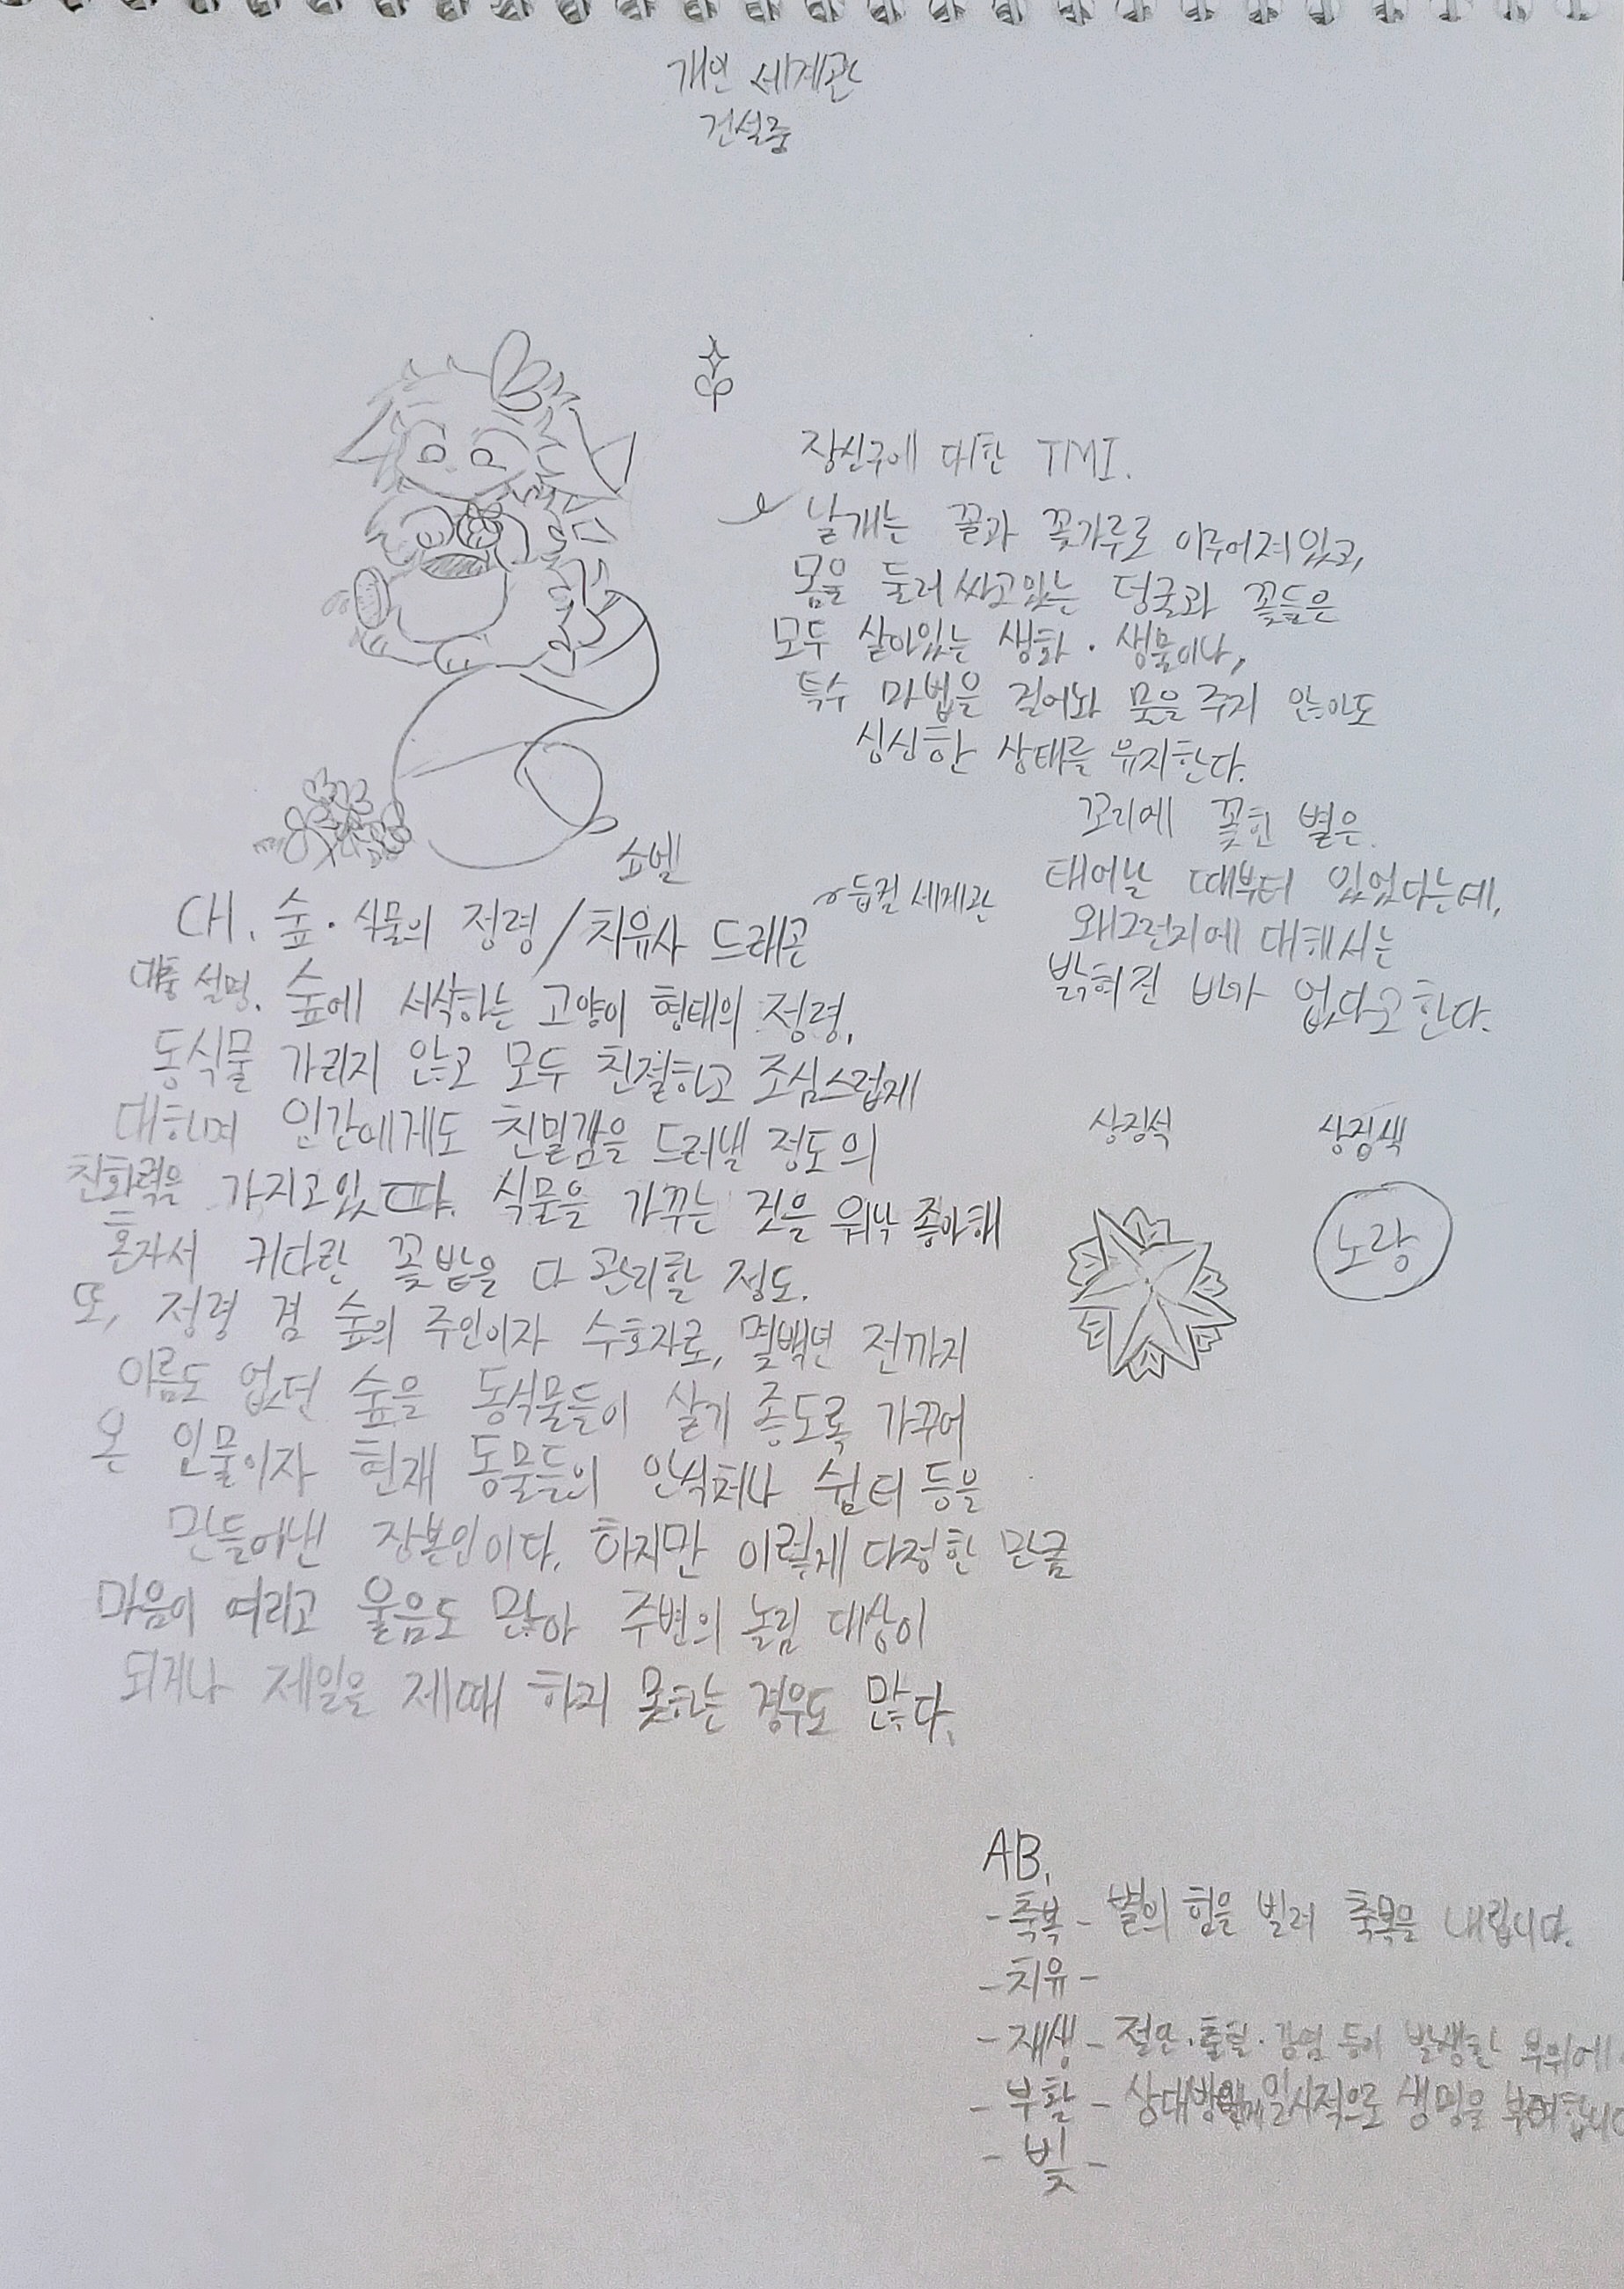 개인 세계관
건설중
장신구에 대한 TMI.
날개는 꿀과 꽃가루로 이루어져있고,
몸을 둘러싸고있는 덩굴과 꽃들은
모두 살아있는 생화·생물이나,
특수 마법을 걸어놔 물을 주지 않아도
싱싱한 상태를 유지한다.
꼬리에 꽃힌 별은
태어날 때부터 있었다는데,
왜그런지에 대해서는
밝혀진 바가 없다고 한다.
쇼벨
CH. 숲·식물의 정령/치유사 드래곤
듭컬 세계관
대충 설명. 숲에 서식하는 고양이 형태의 정령.
동식물 가리지 않고 모두 친절하고 조심스럽게
대하며 인간에게도 친밀감을 드러낼 정도의
친화력을 가지고있다. 식물을 가꾸는 것을 워낙 좋아해
혼자서 커다란 꽃밭을 다 관리할 정도.
또, 정령 겸 숲의 주인이자 수호자로, 몇백년 전까지
이름도 없던 숲을 동식물들이 살기 좋도록 가꾸어
온 인물이자 현재 동물들의 안식처나 쉼터 등을
만들어낸 장본인이다. 하지만 이렇게 다정한 만큼
마음이 여리고 울음도 많아 주변의 놀림 대상이
되거나 제일을 제때 하지 못하는 경우도 많다.
상징석
상징색
노랑
AB.
-축복- 별의 힘을 빌려 축복을 내립니다.
-치유-
-재생- 절단·출혈·감염 등이 발생한 부위에
-부활- 상대방에게 일시적으로 생명을 부여합니다
-빛-